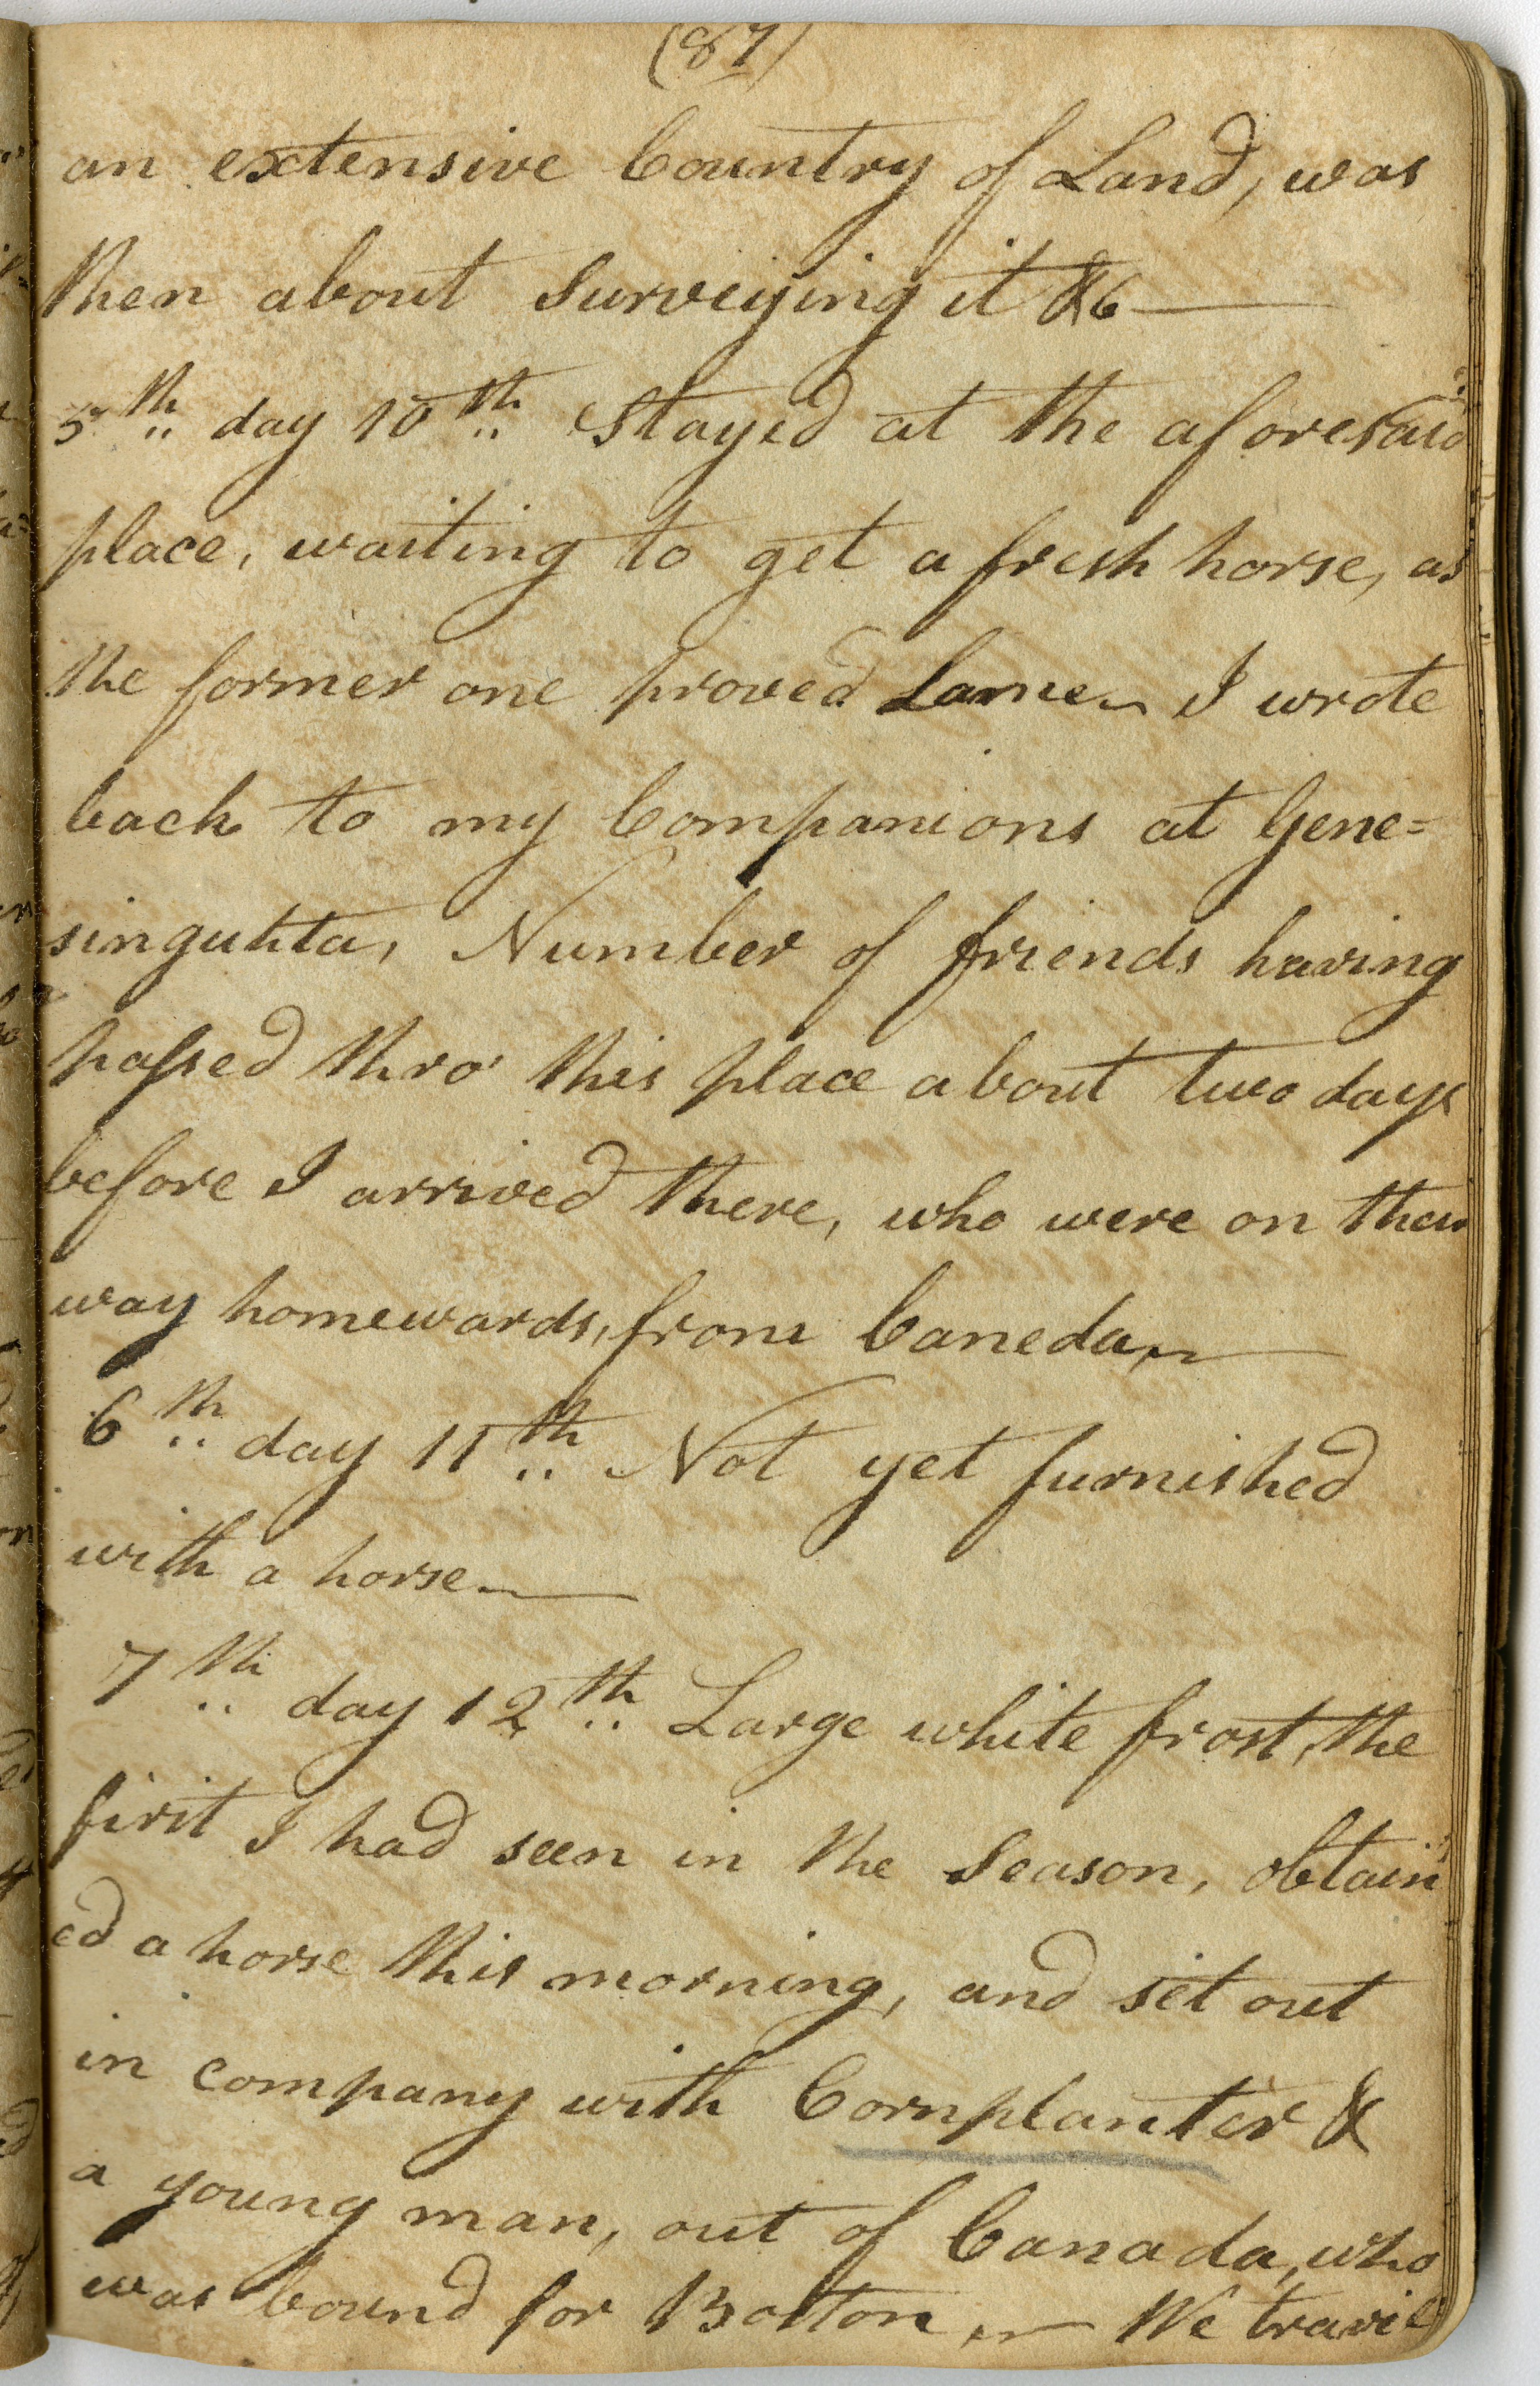 (87)
an extensive Country of Land, was
then about Surveying it &c —
5th day 10th Stayed at the aforesaid
place, waiting to get a fresh horse, as
the former one proved Lame. I wrote
back to my Companions at Gene=
singuhta, Number of friends having
passed thro' this place about two days
before I arrived there, who were on their
way homewards, from Caneda, —
6th day 11th Not yet furnished
with a horse. —
7th day 12th Large white frost, the
first I had seen in the Season, obtain
ed a horse this morning, and set out
in company with Cornplanter &
a young man, out of Canada, who
was bound for Boston, — We travil